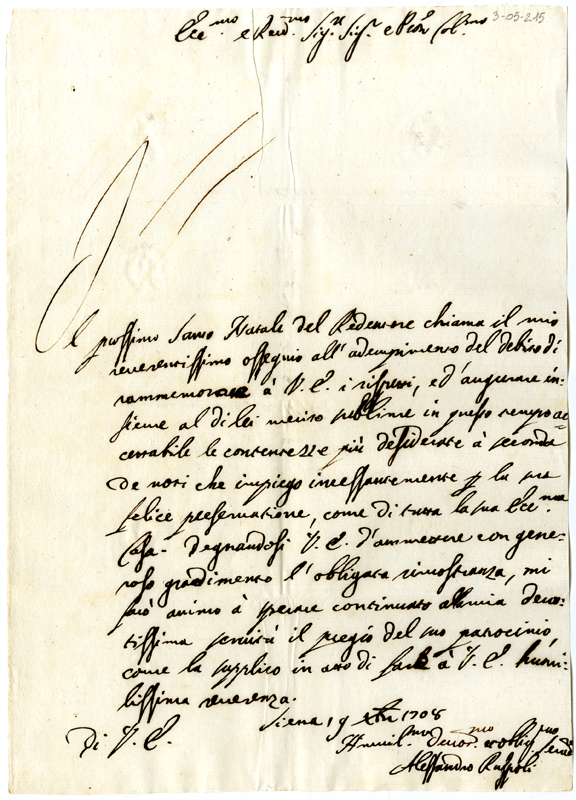 3-05-215
Ecc.mo e Rev.mo Sig.r Sig.r e Pron Col.mo
Il prossimo Santo Natale del Redentore chiama il mio
reverentissimo ossequio all'adempimento del debito di
rammemorare à V.E. i rispetti, ed'augurare in-
sieme al di lei merito sublime in questo tempo ac-
cettabile le contentezze più desiderate à seconda
de voti che impiego incessantemente p la sua
felice preservatione, come di tutta la sua Ecc.ma
Casa. Degnandosi V.E. d'ammettere con gene-
roso gradimento l'obligata rimostranza, mi
farò animo à sperare continuato alla mia devo-
tissima servitù il pregio del suo patrocinio,
come la supplico in atto di farle à V.E. humi-
lissima reverenza.
Siena, 9 Xbre 1708
Di V.E.
Humil.mo Devot.mo et oblig.mo Serv.e
Alessandro Ruspoli